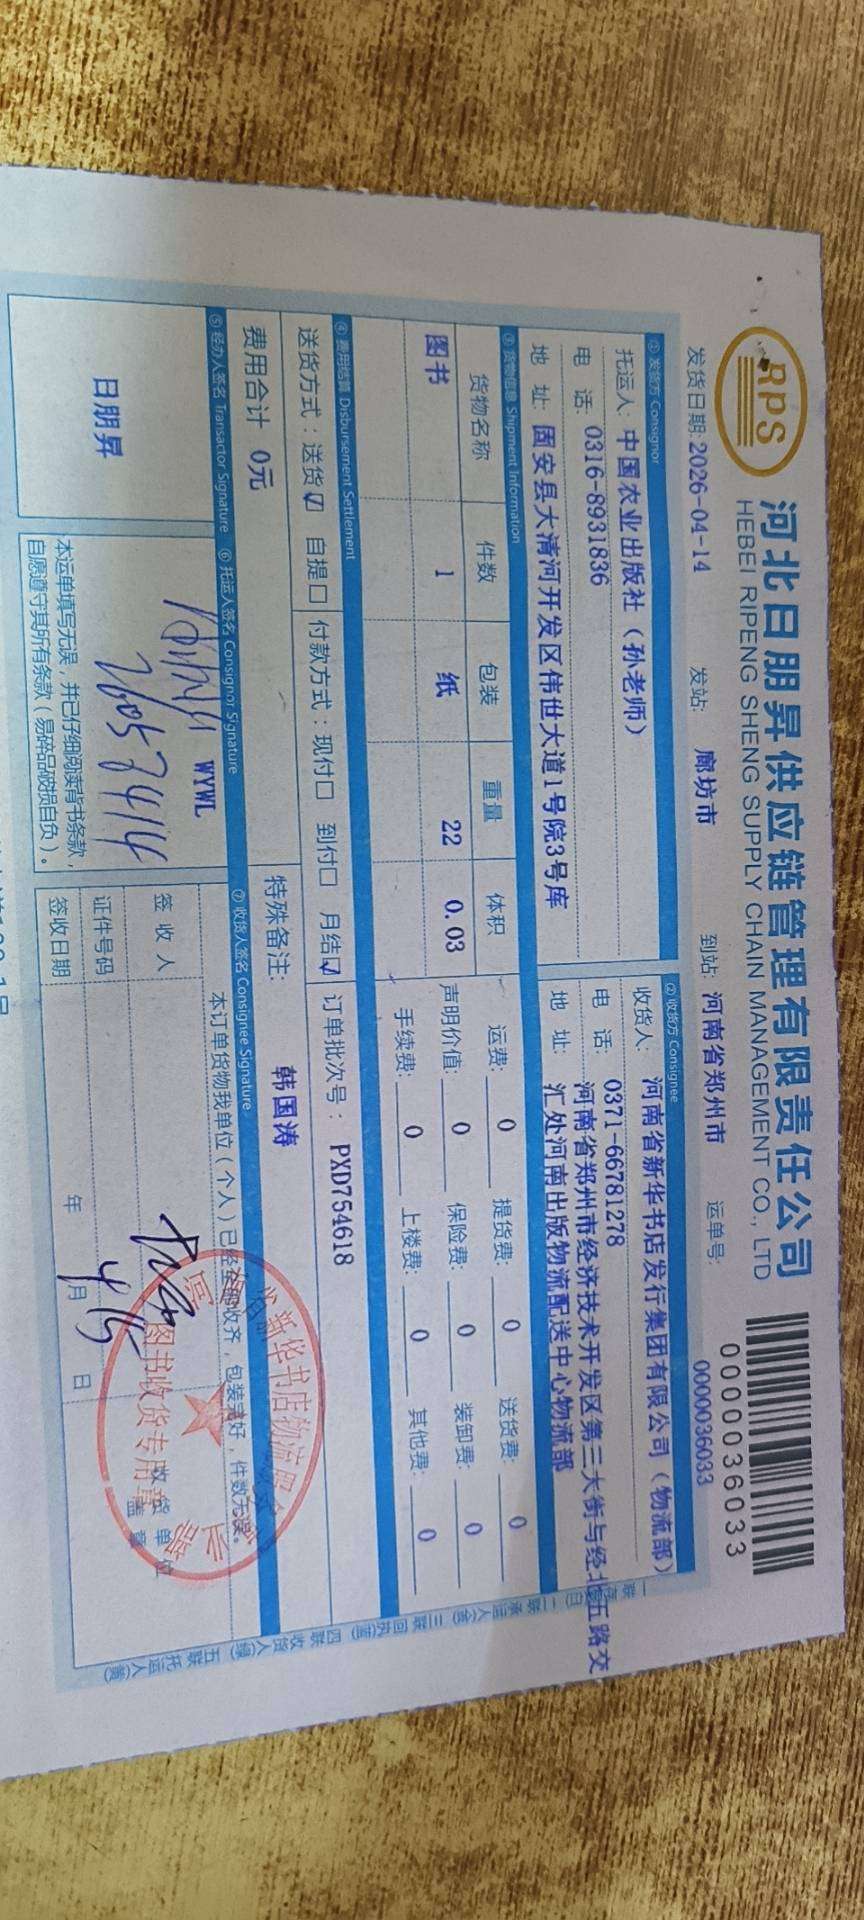 RPS
河北日朋昇供应链管理有限责任公司
HEBEI RIPENG SHENG SUPPLY CHAIN MANAGEMENT CO., LTD
0000036033
发货日期:2026-04-14 发站: 廊坊市 到站: 河南省郑州市 运单号: 0000036033
① 发货方 Consignor
托运人: 中国农业出版社（孙老师）
电 话: 0316-8931836
地 址: 固安县大清河开发区伟世大道1号院3号库
② 收货方 Consignee
收货人: 河南省新华书店发行集团有限公司（物流部）
电 话: 0371-66781278
地 址: 河南省郑州市经济技术开发区第三大街与经北五路交
汇处河南出版物流配送中心物流部
③ 货物信息 Shipment Information
货物名称 件数 包装 重量 体积
图书 1 纸 22 0.03
运费: 0 提货费: 0 送货费: 0
声明价值: 0 保险费: 0 装卸费: 0
手续费: 0 上楼费: 0 其他费: 0
④ 费用结算 Disbursement Settlement
送货方式：送货☑ 自提☐ 付款方式：现付☐ 到付☐ 月结☑ 订单批次号： PXD754618
费用合计 0元 特殊备注: 韩国涛
⑤ 经办人签名 Transactor Signature
日朋昇
⑥ 托运人签名 Consignor Signature
WYWL
本运单填写无误，并已仔细阅读背书条款，
自愿遵守其所有条款（易碎品破损自负）。
⑦ 收货人签名 Consignee Signature
本订单货物我单位（个人）已经全部收齐，包装完好，件数无误。
签 收 人
证件号码
签收日期 年 4月15日
收货单位
盖章
图书收货专用章